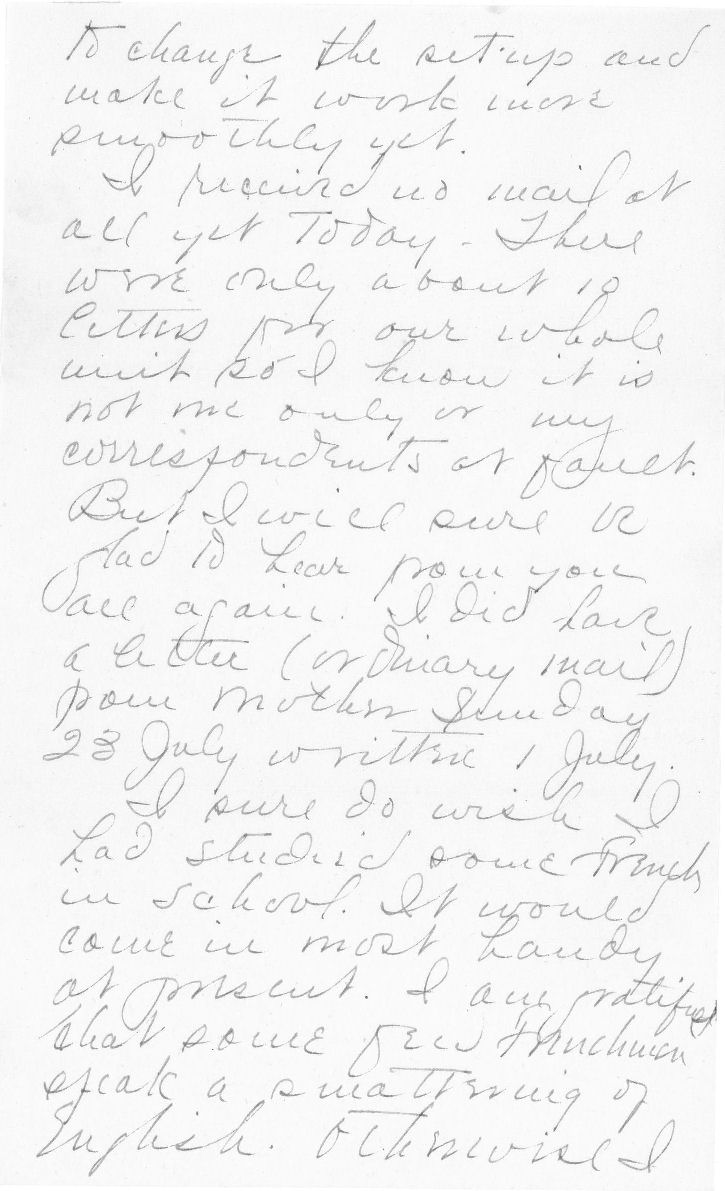 to change the set-up and
make it work more
smoothly yet.
I received no mail at
all yet today - There
were only about 10
letters for our whole
unit so I know it is
not me only or my
correspondents at fault.
But I will sure be
glad to hear from you
all again. I did have
a letter (ordinary mail)
from mother Sunday
23 July written 1 July.
I sure do wish I
had studied some French
in school. It would
come in most handy
at present. I am gratified
that some few Frenchmen
speak a smattering of
English. Otherwise I